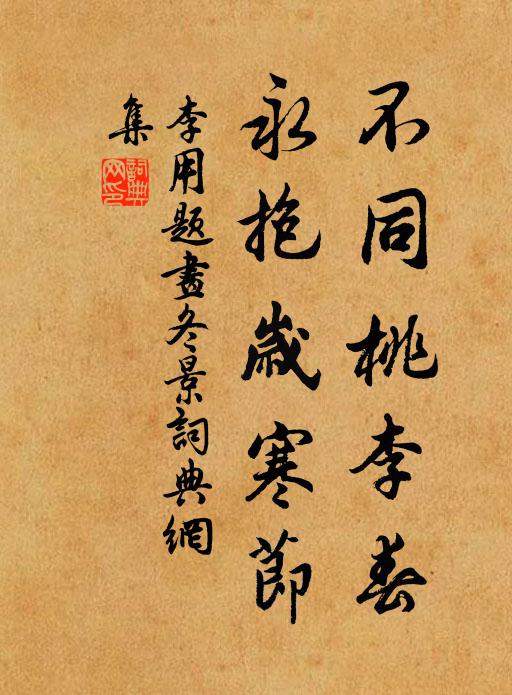 不同桃李春
永抱歲寒節
李用題畫冬景詞典網
集
詞典網印